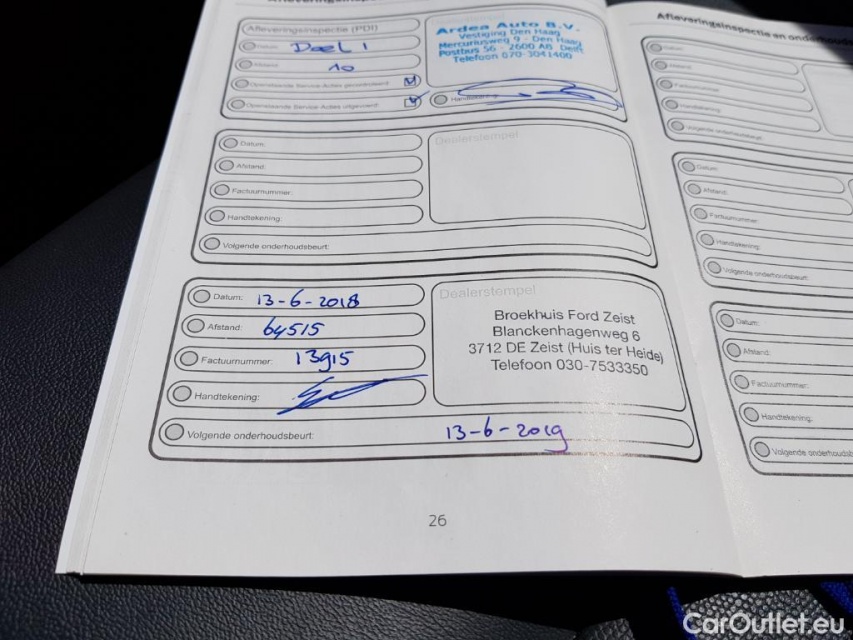 Afleveringsinspectie (PDI)
Datum: Deel 1
Afstand: 10
Openstaande Service Acties gecontroleerd:
Openstaande Service Acties uitgevoerd:
Ardea Auto B.V.
Vestiging Den Haag
Mercuriusweg 9 - Den Haag
Postbus 56 - 2600 AB Delft
Telefoon 070-3041400
Handtekening:
Datum:
Afstand:
Factuurnummer:
Handtekening:
Volgende onderhoudsbeurt:
Dealerstempel
Datum: 13-6-2018
Afstand: 64515
Factuurnummer: 13915
Handtekening:
Volgende onderhoudsbeurt: 13-6-2019
Dealerstempel
Broekhuis Ford Zeist
Blanckenhagenweg 6
3712 DE Zeist (Huis ter Heide)
Telefoon 030-7533350
26
Afleveringsinspectie en
Datum:
Afstand:
Factuurnummer:
Handtekening:
Volgende onderhoudsbeurt:
Datum:
Afstand:
Factuurnummer:
Handtekening:
Volgende onderhoudsbeurt:
Datum:
Afstand:
Factuurnummer:
Handtekening:
Volgende onderhoudsbeurt
CarOutlet.eu